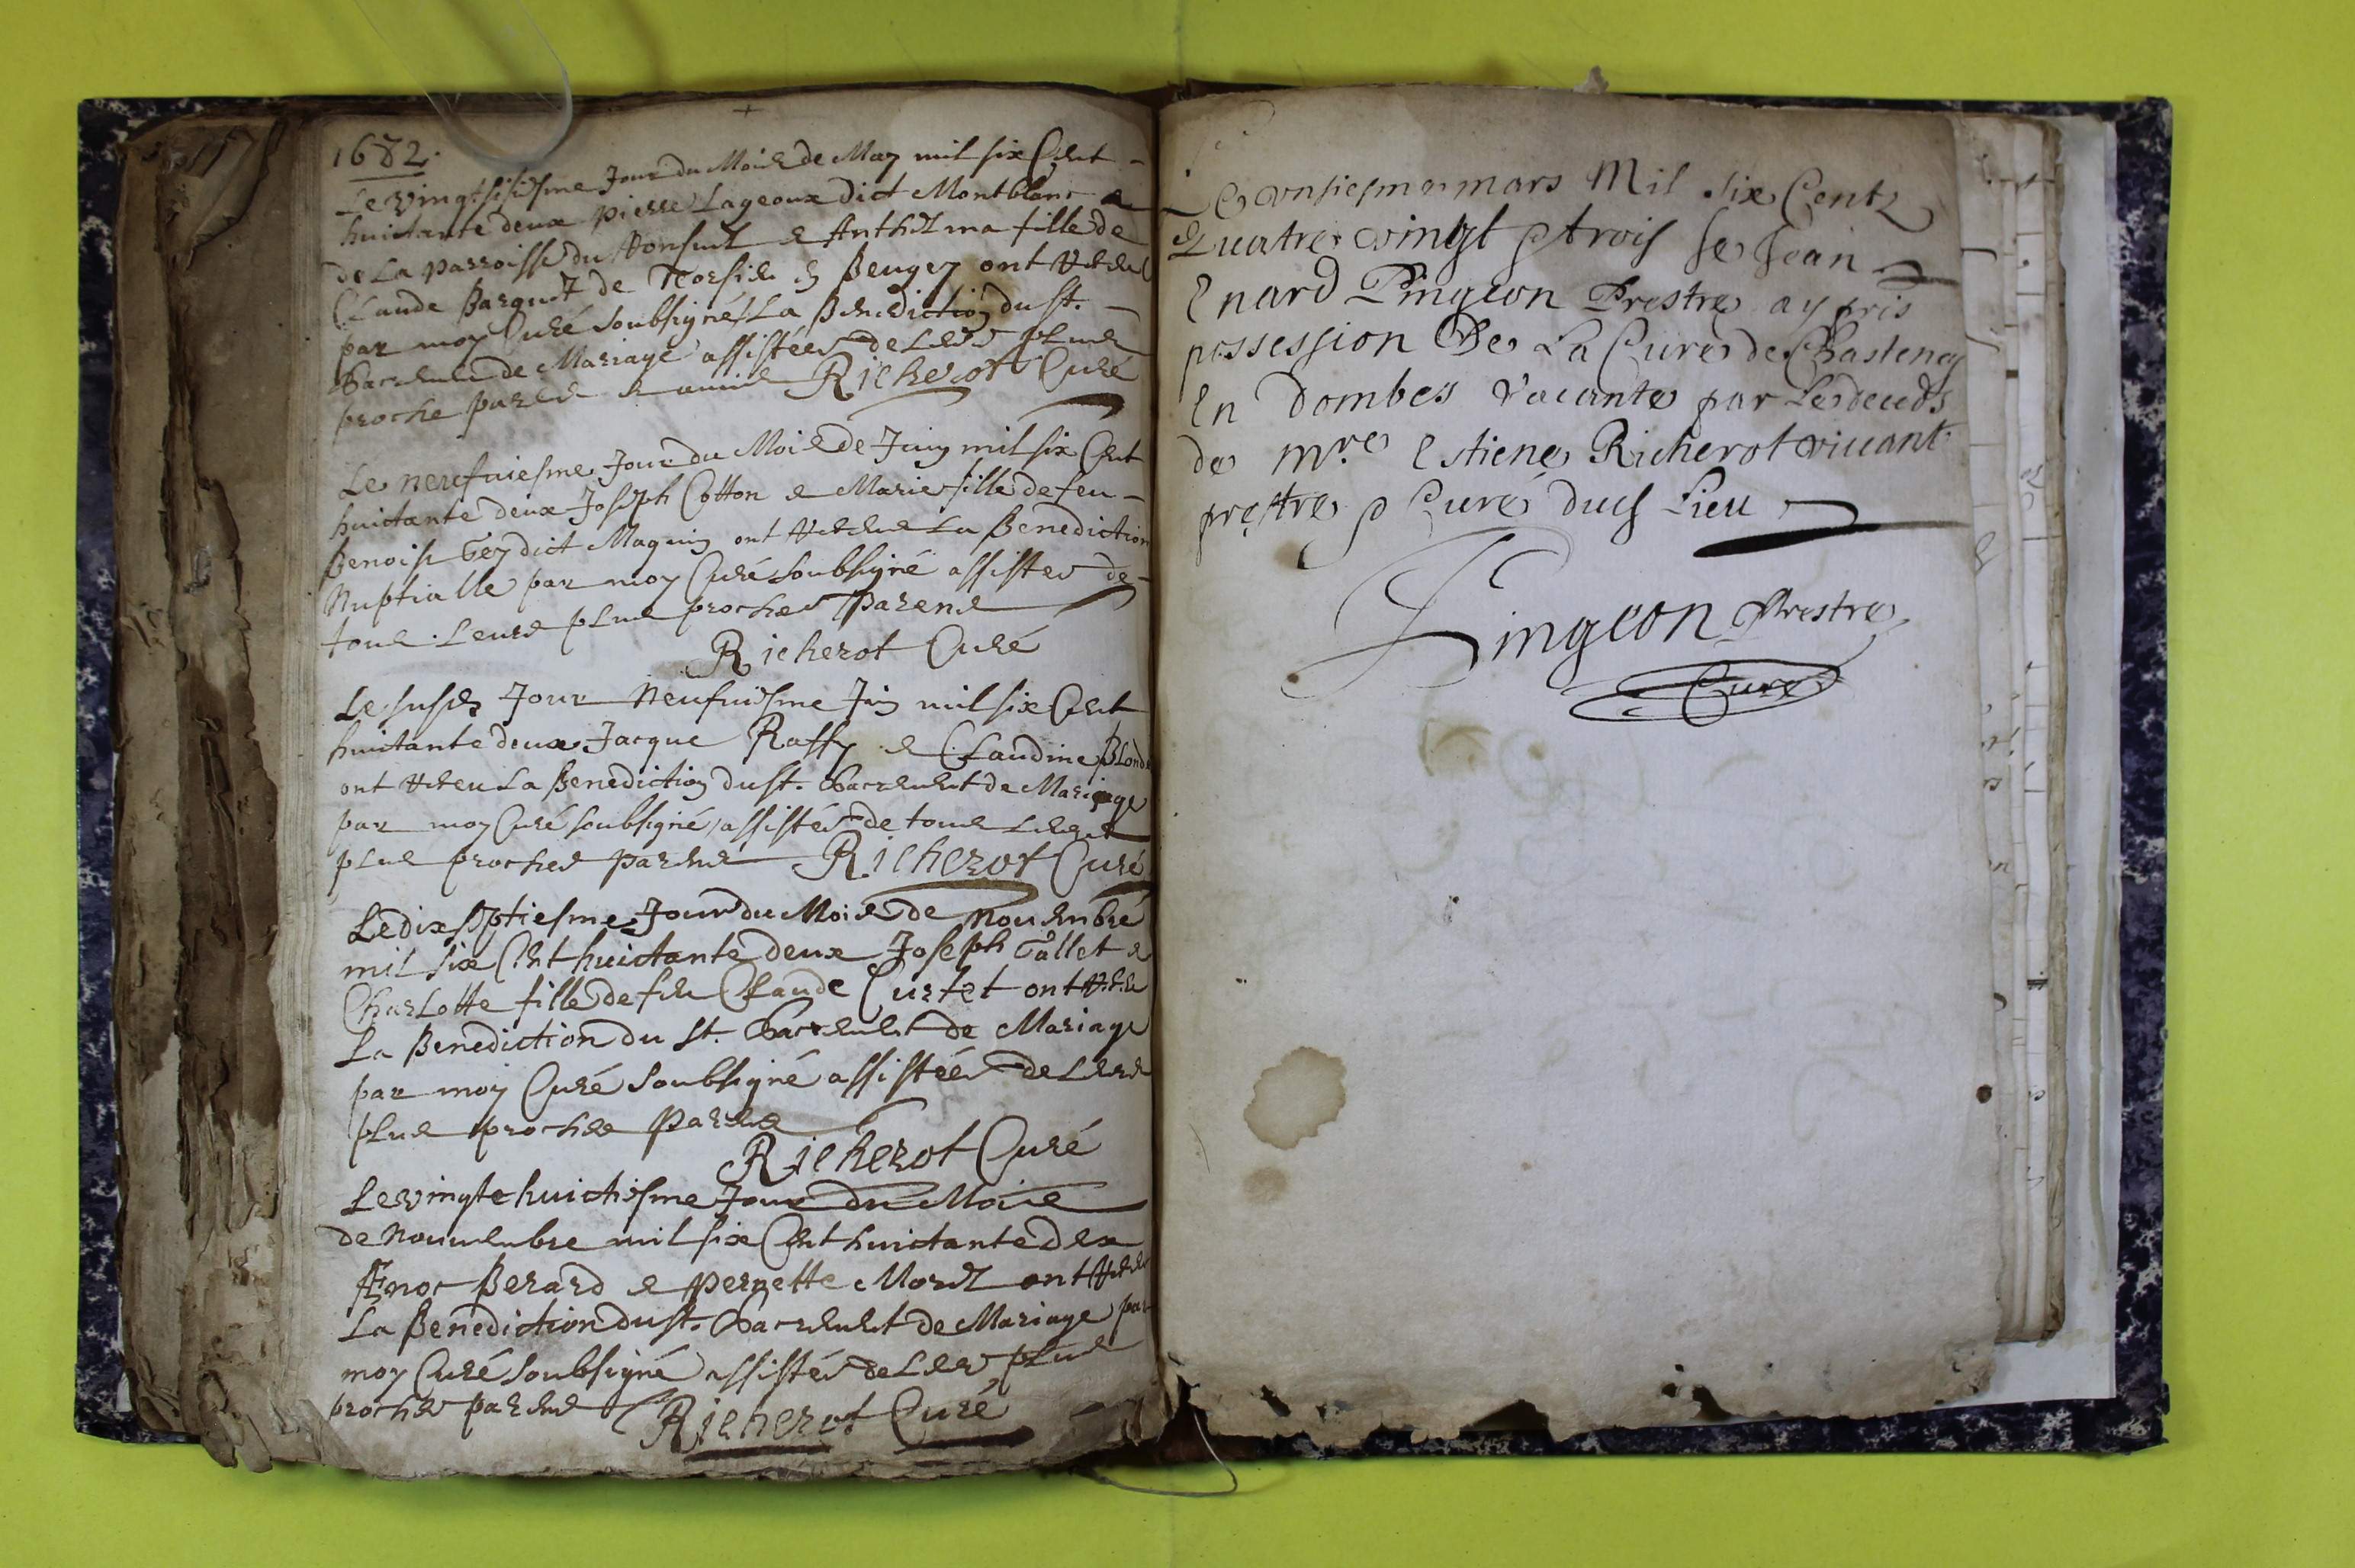 1682.
Le vingt sisiesme Jour du Mois de May mil six Cent
huictante deux Pierre Lageoux dict Montblanc &
de La parroisse du & Anthelma fille de
Claude Barquet de en Beugey ont
par moy Curé soubsigné La Benediction du St.
Sacrement de Mariage assistées de Leurs plus
proche parens & amis Richerot Curé
Le neufuiesme Jour du Mois de Juin mil six Cent
huictante deux Joseph Cotton & Marie fille de feu
Benoist Gey dict Maguin ont La Benediction
Nuptialle par moy Curé soubsigné assistes de
tous Leurs plus proches parens
Richerot Curé
Le susdt Jour Neufuiesme Juin mil six Cent
huictante deux Jacque Raffy & Claudine Blond
ont La Benediction du St. Sacrement de Mariage
par moy Curé soubsigné assistés de tous Leurs
plus proches parens Richerot Curé
Le dix septiesme Jour du Mois de Nouembre
mil six Cent huictante deux Joseph Tallet &
Charlotte fille de feu Claude Curtet ont
La Benediction du St. Sacrement de Mariage
par moy Curé soubsigné assistées de Leurs
plus proches Parens
Richerot Curé
Le vingte huictiesme Jour du Mois
de Nouuembre mil six Cent huictante deux
Ænoc Berard & Pernette Morel ont
La Benediction du St. Sacrement de Mariage par
moy Curé soubsigné assistés de Leurs plus
proches parens Richerot Curé
Le onsiesme mars Mil six Centz
Quatre vingt & trois Je Jean
Enard Pingeon Prestre ay pris
possession De La Cure de Chasteney
En Dombes vacante par Le deceds
de Mre Estiene Richerot viuant
prestre & Curé dud Lieu
Pingeon Prestre
Curé